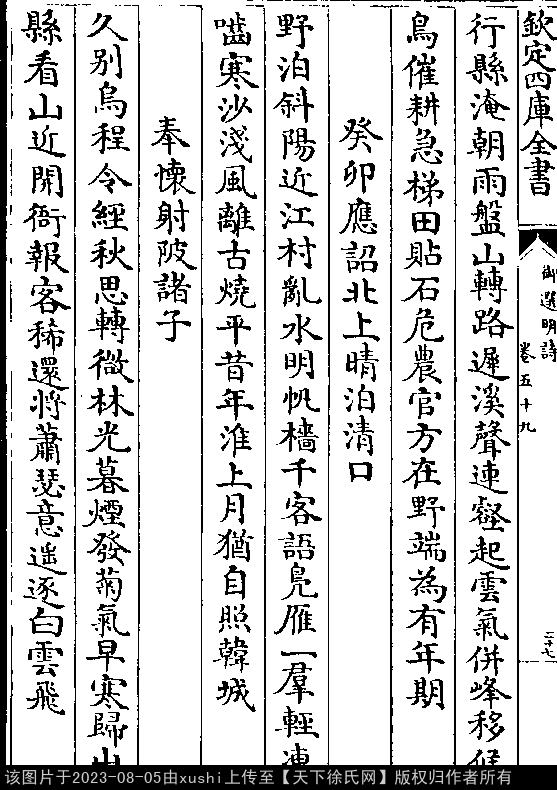 欽定四庫全書
御選明詩
卷五十九
二十七
行縣淹朝雨盤山轉路遲溪聲連壑起雲氣併峰移候
鳥催耕急梯田貼石危農官方在野端為有年期
癸卯應詔北上晴泊清口
野泊斜陽近江村亂水明帆檣千客語鳧雁一羣輕凍
囓寒沙淺風離古燒平昔年淮上月猶自照韓城
奉懷射陂諸子
久别烏程令經秋思轉微林光暮煙發菊氣早寒歸山
縣看山近開衙報客稀還將蕭瑟意遥逐白雲飛
该图片于2023-08-05由xushi上传至【天下徐氏网】版权归作者所有